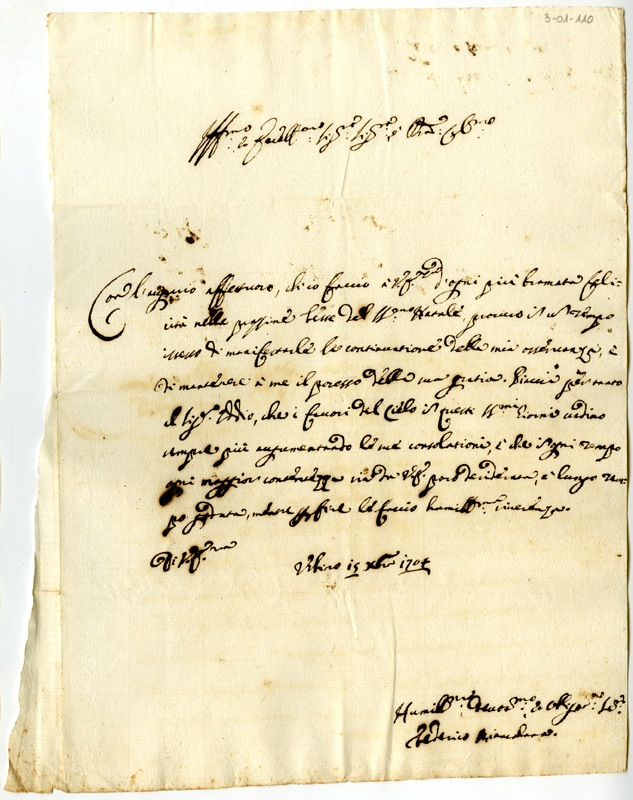 3-01-110
Ill.mo et Eccell.mo Sig.re Sig.re e Pad.ne Col.mo
Con l'augurio affettuoso, ch'io faccio à V.E. d'ogni più bramata feli-
cità nelle prossime feste del SS.mo Natale, procuro in un tempo
istesso di manifestarle la continuatione della mia osservanza, e
di mantenere à me il possesso della sua gratia. Piaccia per tanto
al Sig.re Iddio, che i favori del Cielo in questi SS.mi giorni vadino
sempre più augumentando le sue consolationi, e che in ogni tempo
ogni maggior contentezza sia da V.E. posseduta, e lungo tem-
po goduta, mentre per fine le faccio humiliss.ma riverenza.
Di V.E.
Urbino 15 Xbre 1704
Humiliss.mo Devot.mo et Oblig.mo Ser.re
Federico